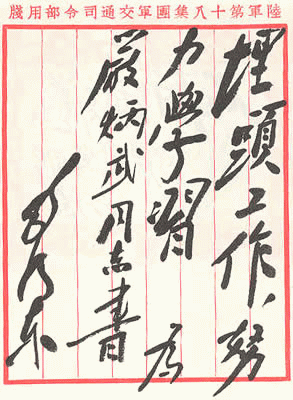 陸軍第十八集團軍交通司令部用牋
埋頭工作、努
力學習 為
嚴炳武同志書
毛泽东